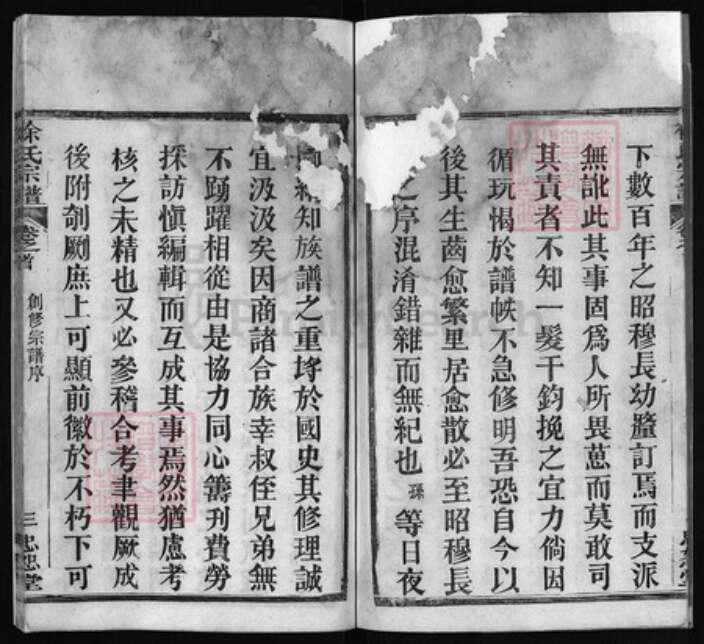 下數百年之昭穆長幼釐訂焉而支派
無訛此其事固爲人所畏葸而莫敢司
其責者不知一髮千鈞挽之宜力倘因
循玩愒於譜帙不急修明吾恐自今以
後其生齒愈繁里居愈散必至昭穆長
之序混淆錯雜而無紀也 孫 等日夜
細知族譜之重埓於國史其修理誠
宜汲汲矣因商諸合族幸叔侄兄弟無
不踴躍相從由是協力同心籌刋費勞
採訪愼編輯而互成其事焉然猶慮考
核之未精也又必參稽合考聿觀厥成
後附剞劂庶上可顯前徽於不朽下可
徐氏宗譜 卷之首 創修宗譜序 三 忠恕堂